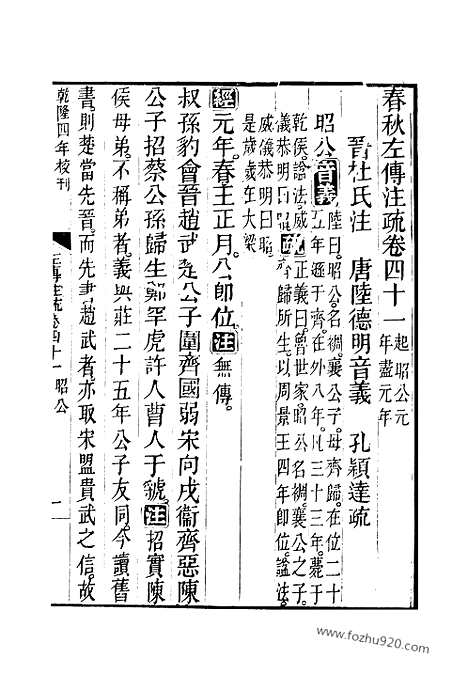 春秋左傳注疏卷四十一起昭公元年盡元年
晉杜氏注　唐陸德明音義　孔穎達疏
昭公音義陸曰昭公名裯襄公子母齊歸在位二十
五年遜于齊在外八年凡三十三年薨于
乾侯諡法威儀恭明曰昭疏正義曰魯世家昭公名裯襄公之子
齊歸所生以周景王四年即位諡法
威儀恭明曰昭
是歲歲在大梁
經元年春王正月公即位注無傳
叔孫豹會晉趙武楚公子圍齊國弱宋向戌衞齊惡陳
公子招蔡公孫歸生鄭罕虎許人曹人于虢注招實陳
侯母弟不稱弟者義與莊二十五年公子友同今讀舊
書則楚當先晉而先書趙武者亦取宋盟貴武之信故
乾隆四年校刊
左傳注疏卷四十一　昭公
一
www.fozhu920.com